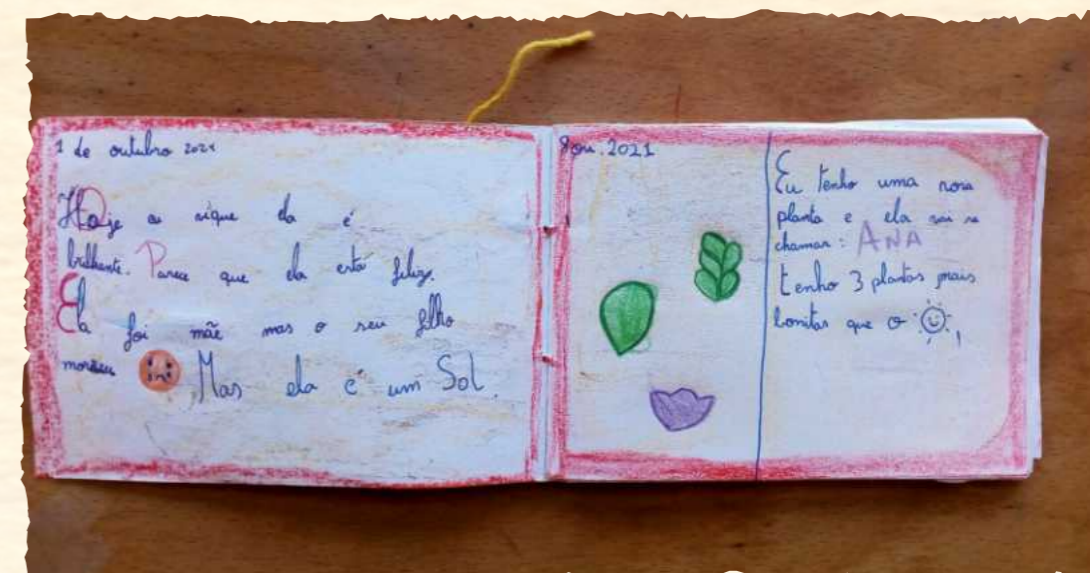 1 de outubro 2021
Hoje a sique ela é
brilhante. Parece que ela está feliz.
Ela foi mãe mas o seu filho
morreu Mas ela é um Sol.
8ou.2021
Eu tenho uma nova
planta e ela vai se
chamar: ANA
tenho 3 plantas mais
bonitas que o